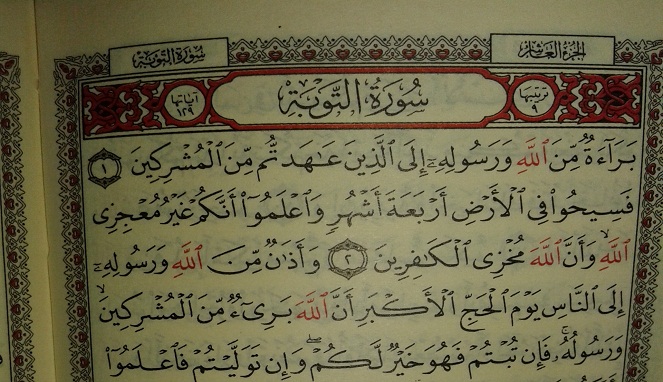 الجزء العاشر
سورة التوبة
ترتيبها ٩
سورة التوبة
آياتها ١٢٩
بَرَآءَةٌ مِّنَ ٱللَّهِ وَرَسُولِهِۦٓ إِلَى ٱلَّذِينَ عَٰهَدتُّم مِّنَ ٱلْمُشْرِكِينَ ١
فَسِيحُوا۟ فِى ٱلْأَرْضِ أَرْبَعَةَ أَشْهُرٍ وَٱعْلَمُوٓا۟ أَنَّكُمْ غَيْرُ مُعْجِزِى
ٱللَّهِ ۙ وَأَنَّ ٱللَّهَ مُخْزِى ٱلْكَٰفِرِينَ ٢ وَأَذَٰنٌ مِّنَ ٱللَّهِ وَرَسُولِهِۦٓ
إِلَى ٱلنَّاسِ يَوْمَ ٱلْحَجِّ ٱلْأَكْبَرِ أَنَّ ٱللَّهَ بَرِىٓءٌ مِّنَ ٱلْمُشْرِكِينَ ۙ
وَرَسُولُهُۥ ۚ فَإِن تُبْتُمْ فَهُوَ خَيْرٌ لَّكُمْ ۖ وَإِن تَوَلَّيْتُمْ فَٱعْلَمُوٓا۟